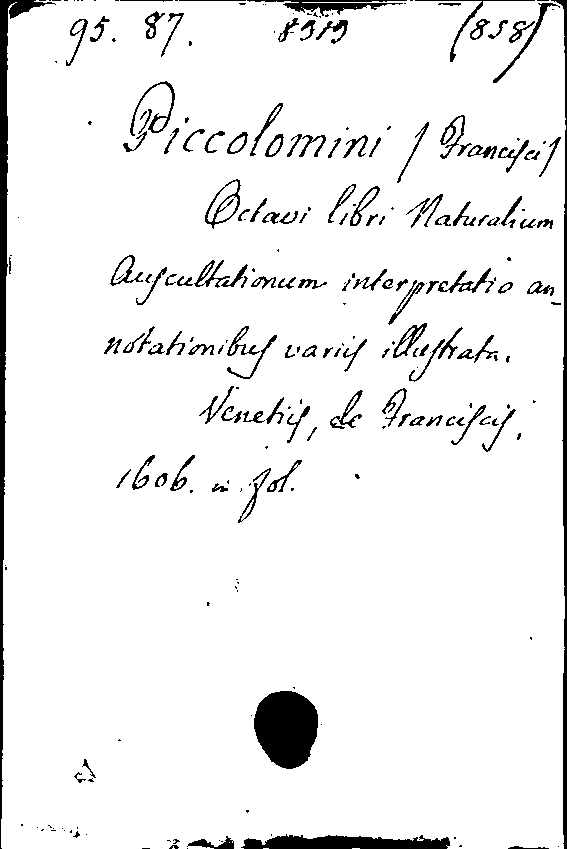 95. 87. 8313 (858)
Piccolomini / Francisci /
Octavi libri Naturalium
Auscultationum interpretatio an_
notationibus variis illustrata.
Venetiis, de Franciscis,
1606. in fol.